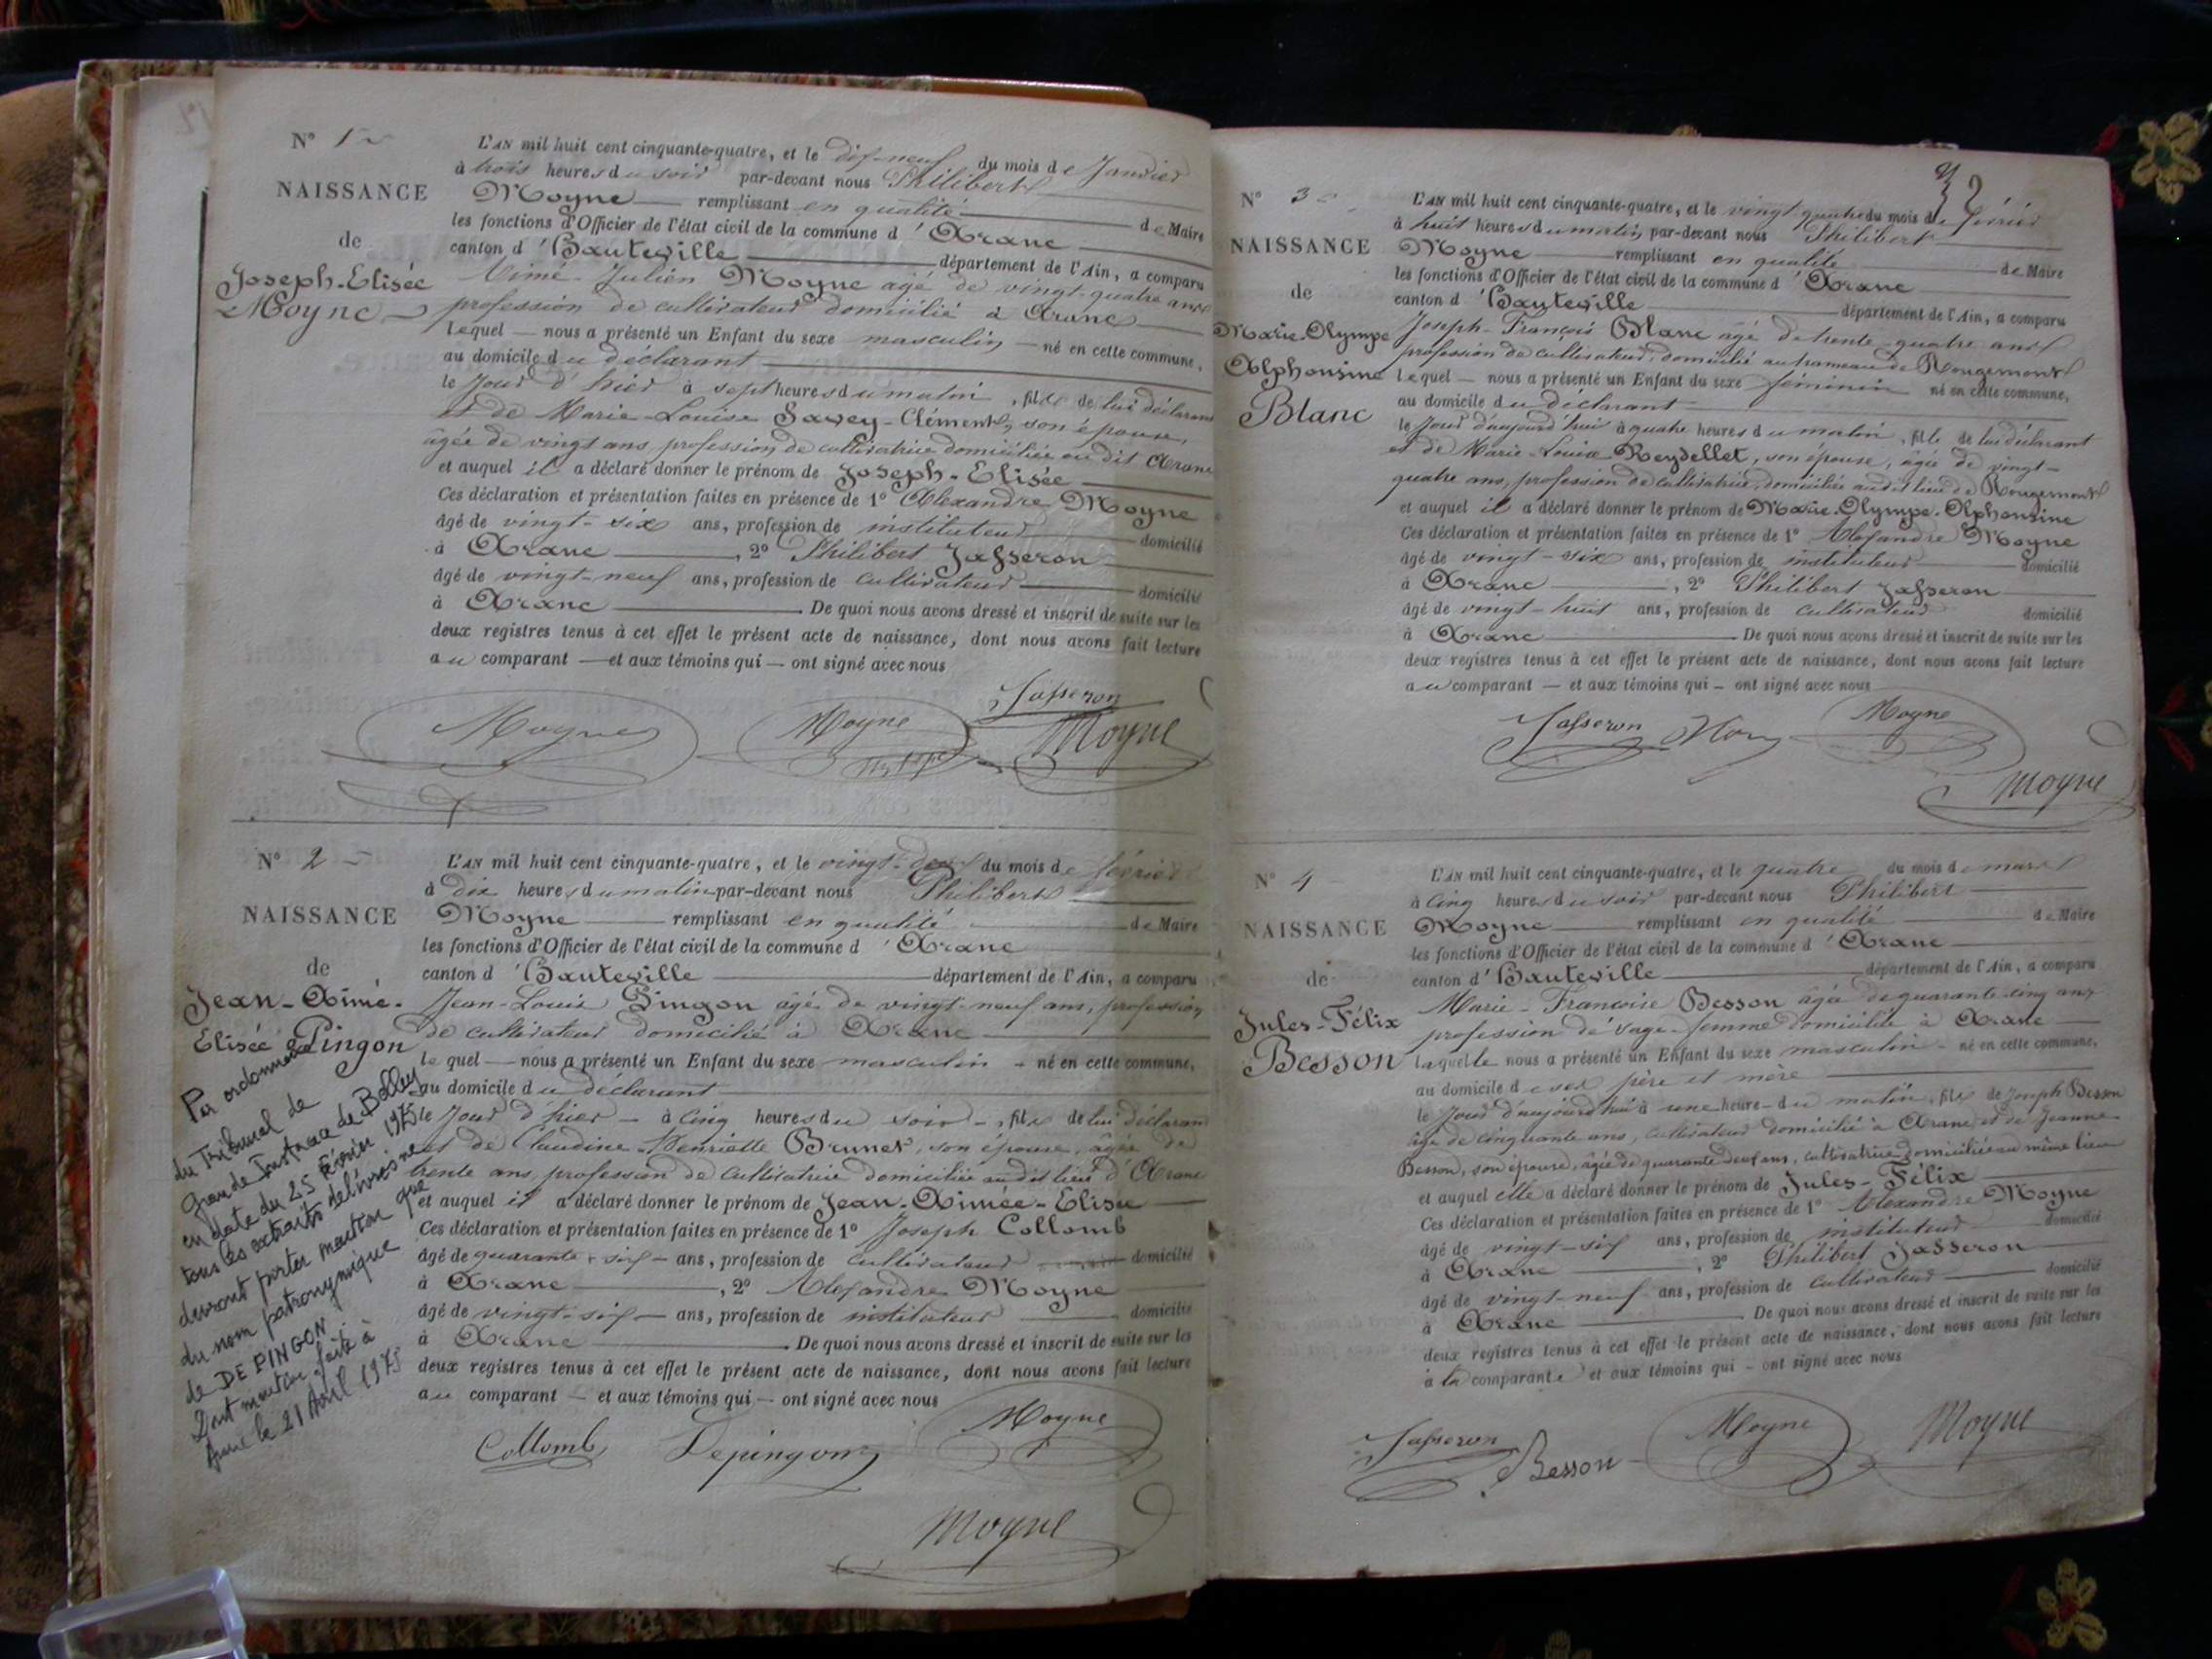 N° 1
NAISSANCE
de
Joseph-Elisée
Moyne
L'AN mil huit cent cinquante-quatre, et le dix-neuf du mois de Janvier
à trois heures du soir par-devant nous Philibert
Moyne remplissant en qualité de Maire
les fonctions d'Officier de l'état civil de la commune d'Aranc
canton d'Hauteville département de l'Ain, a comparu
Aimé-Julien Moyne âgé de vingt-quatre ans
profession de cultivateur domicilié à Aranc
lequel nous a présenté un Enfant du sexe masculin né en cette commune,
au domicile du déclarant
le Jour d'hier à sept heures du matin, fils de lui déclarant
et de Marie-Louise Savey-Clément, son épouse,
âgée de vingt ans, profession de cultivatrice domiciliée au dit Aranc
et auquel il a déclaré donner le prénom de Joseph-Elisée
Ces déclaration et présentation faites en présence de 1° Alexandre Moyne
âgé de vingt-six ans, profession de instituteur domicilié
à Aranc, 2° Philibert Jasseron
âgé de vingt-neuf ans, profession de cultivateur domicilié
à Aranc De quoi nous avons dressé et inscrit de suite sur les
deux registres tenus à cet effet le présent acte de naissance, dont nous avons fait lecture
au comparant et aux témoins qui ont signé avec nous
Jasseron
Moyne Moyne Moyne
N° 2
NAISSANCE
de
Jean-Aimé-
Elisée Pingon
Par ordonnance
du Tribunal de
Grande Instance de Belley
en date du 25 Février 1975
tous les extraits délivrés ne
devront porter mention que
du nom patronymique
de DE PINGON.
Dont mention faite à
Aranc le 21 Avril 1975
L'AN mil huit cent cinquante-quatre, et le vingt-deux du mois de février
à dix heures du matin par-devant nous Philibert
Moyne remplissant en qualité de Maire
les fonctions d'Officier de l'état civil de la commune d'Aranc
canton d'Hauteville département de l'Ain, a comparu
Jean-Louis Pingon âgé de vingt-neuf ans, profession
de cultivateur domicilié à Aranc
lequel nous a présenté un Enfant du sexe masculin né en cette commune,
au domicile du déclarant
le Jour d'hier à cinq heures du soir, fils de lui déclarant
et de Claudine-Henriette Brunet, son épouse, âgée de
trente ans, profession de cultivatrice domiciliée au dit lieu d'Aranc
et auquel il a déclaré donner le prénom de Jean-Aimée-Elisée
Ces déclaration et présentation faites en présence de 1° Joseph Collomb
âgé de quarante-six ans, profession de cultivateur domicilié
à Aranc, 2° Alexandre Moyne
âgé de vingt-six ans, profession de instituteur domicilié
à Aranc De quoi nous avons dressé et inscrit de suite sur les
deux registres tenus à cet effet le présent acte de naissance, dont nous avons fait lecture
au comparant et aux témoins qui ont signé avec nous
Collomb Depingon Moyne
Moyne
N° 3
NAISSANCE
de
Marie-Olympe
Alphonsine
Blanc
L'AN mil huit cent cinquante-quatre, et le vingt-quatre du mois de février
à huit heures du matin, par-devant nous Philibert
Moyne remplissant en qualité de Maire
les fonctions d'Officier de l'état civil de la commune d'Aranc
canton d'Hauteville département de l'Ain, a comparu
Joseph-François Blanc âgé de trente-quatre ans
profession de cultivateur, domicilié au hameau de Rougemont
lequel nous a présenté un Enfant du sexe féminin né en cette commune,
au domicile du déclarant
le Jour d'aujourd'hui à quatre heures du matin, fille de lui déclarant
et de Marie-Louise Reydellet, son épouse, âgée de vingt-
quatre ans, profession de cultivatrice, domiciliée au dit lieu de Rougemont
et auquel il a déclaré donner le prénom de Marie-Olympe-Alphonsine
Ces déclaration et présentation faites en présence de 1° Alexandre Moyne
âgé de vingt-six ans, profession de instituteur domicilié
à Aranc, 2° Philibert Jasseron
âgé de vingt-huit ans, profession de cultivateur domicilié
à Aranc De quoi nous avons dressé et inscrit de suite sur les
deux registres tenus à cet effet le présent acte de naissance, dont nous avons fait lecture
au comparant et aux témoins qui ont signé avec nous
Jasseron Moyne
Moyne
N° 4
NAISSANCE
de
Jules-Félix
Besson
L'AN mil huit cent cinquante-quatre, et le quatre du mois de mars
à cinq heures du soir par-devant nous Philibert
Moyne remplissant en qualité de Maire
les fonctions d'Officier de l'état civil de la commune d'Aranc
canton d'Hauteville département de l'Ain, a comparu
Marie-Françoise Besson âgée de quarante-cinq ans
profession de sage-femme domiciliée à Aranc
laquelle nous a présenté un Enfant du sexe masculin né en cette commune,
au domicile de ses père et mère
le Jour d'aujourd'hui à une heure du matin, fils de Joseph Besson
âgé de cinquante ans, cultivateur domicilié à Aranc et de Jeanne
Besson, son épouse, âgée de quarante-deux ans, cultivatrice domiciliée au même lieu
et auquel elle a déclaré donner le prénom de Jules-Félix
Ces déclaration et présentation faites en présence de 1° Alexandre Moyne
âgé de vingt-six ans, profession de instituteur domicilié
à Aranc, 2° Philibert Jasseron
âgé de vingt-neuf ans, profession de cultivateur domicilié
à Aranc De quoi nous avons dressé et inscrit de suite sur les
deux registres tenus à cet effet le présent acte de naissance, dont nous avons fait lecture
à la comparante et aux témoins qui ont signé avec nous
Jasseron Besson Moyne Moyne